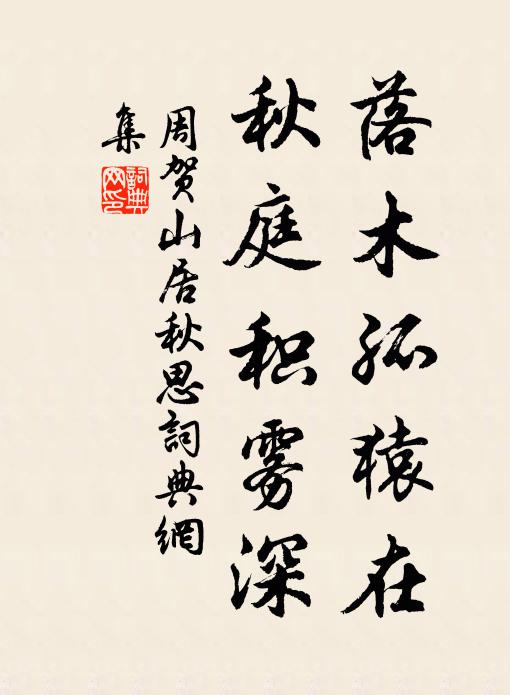 落木孤猿在
秋庭积雾深
周贺山居秋思詞典網
集
詞典网印